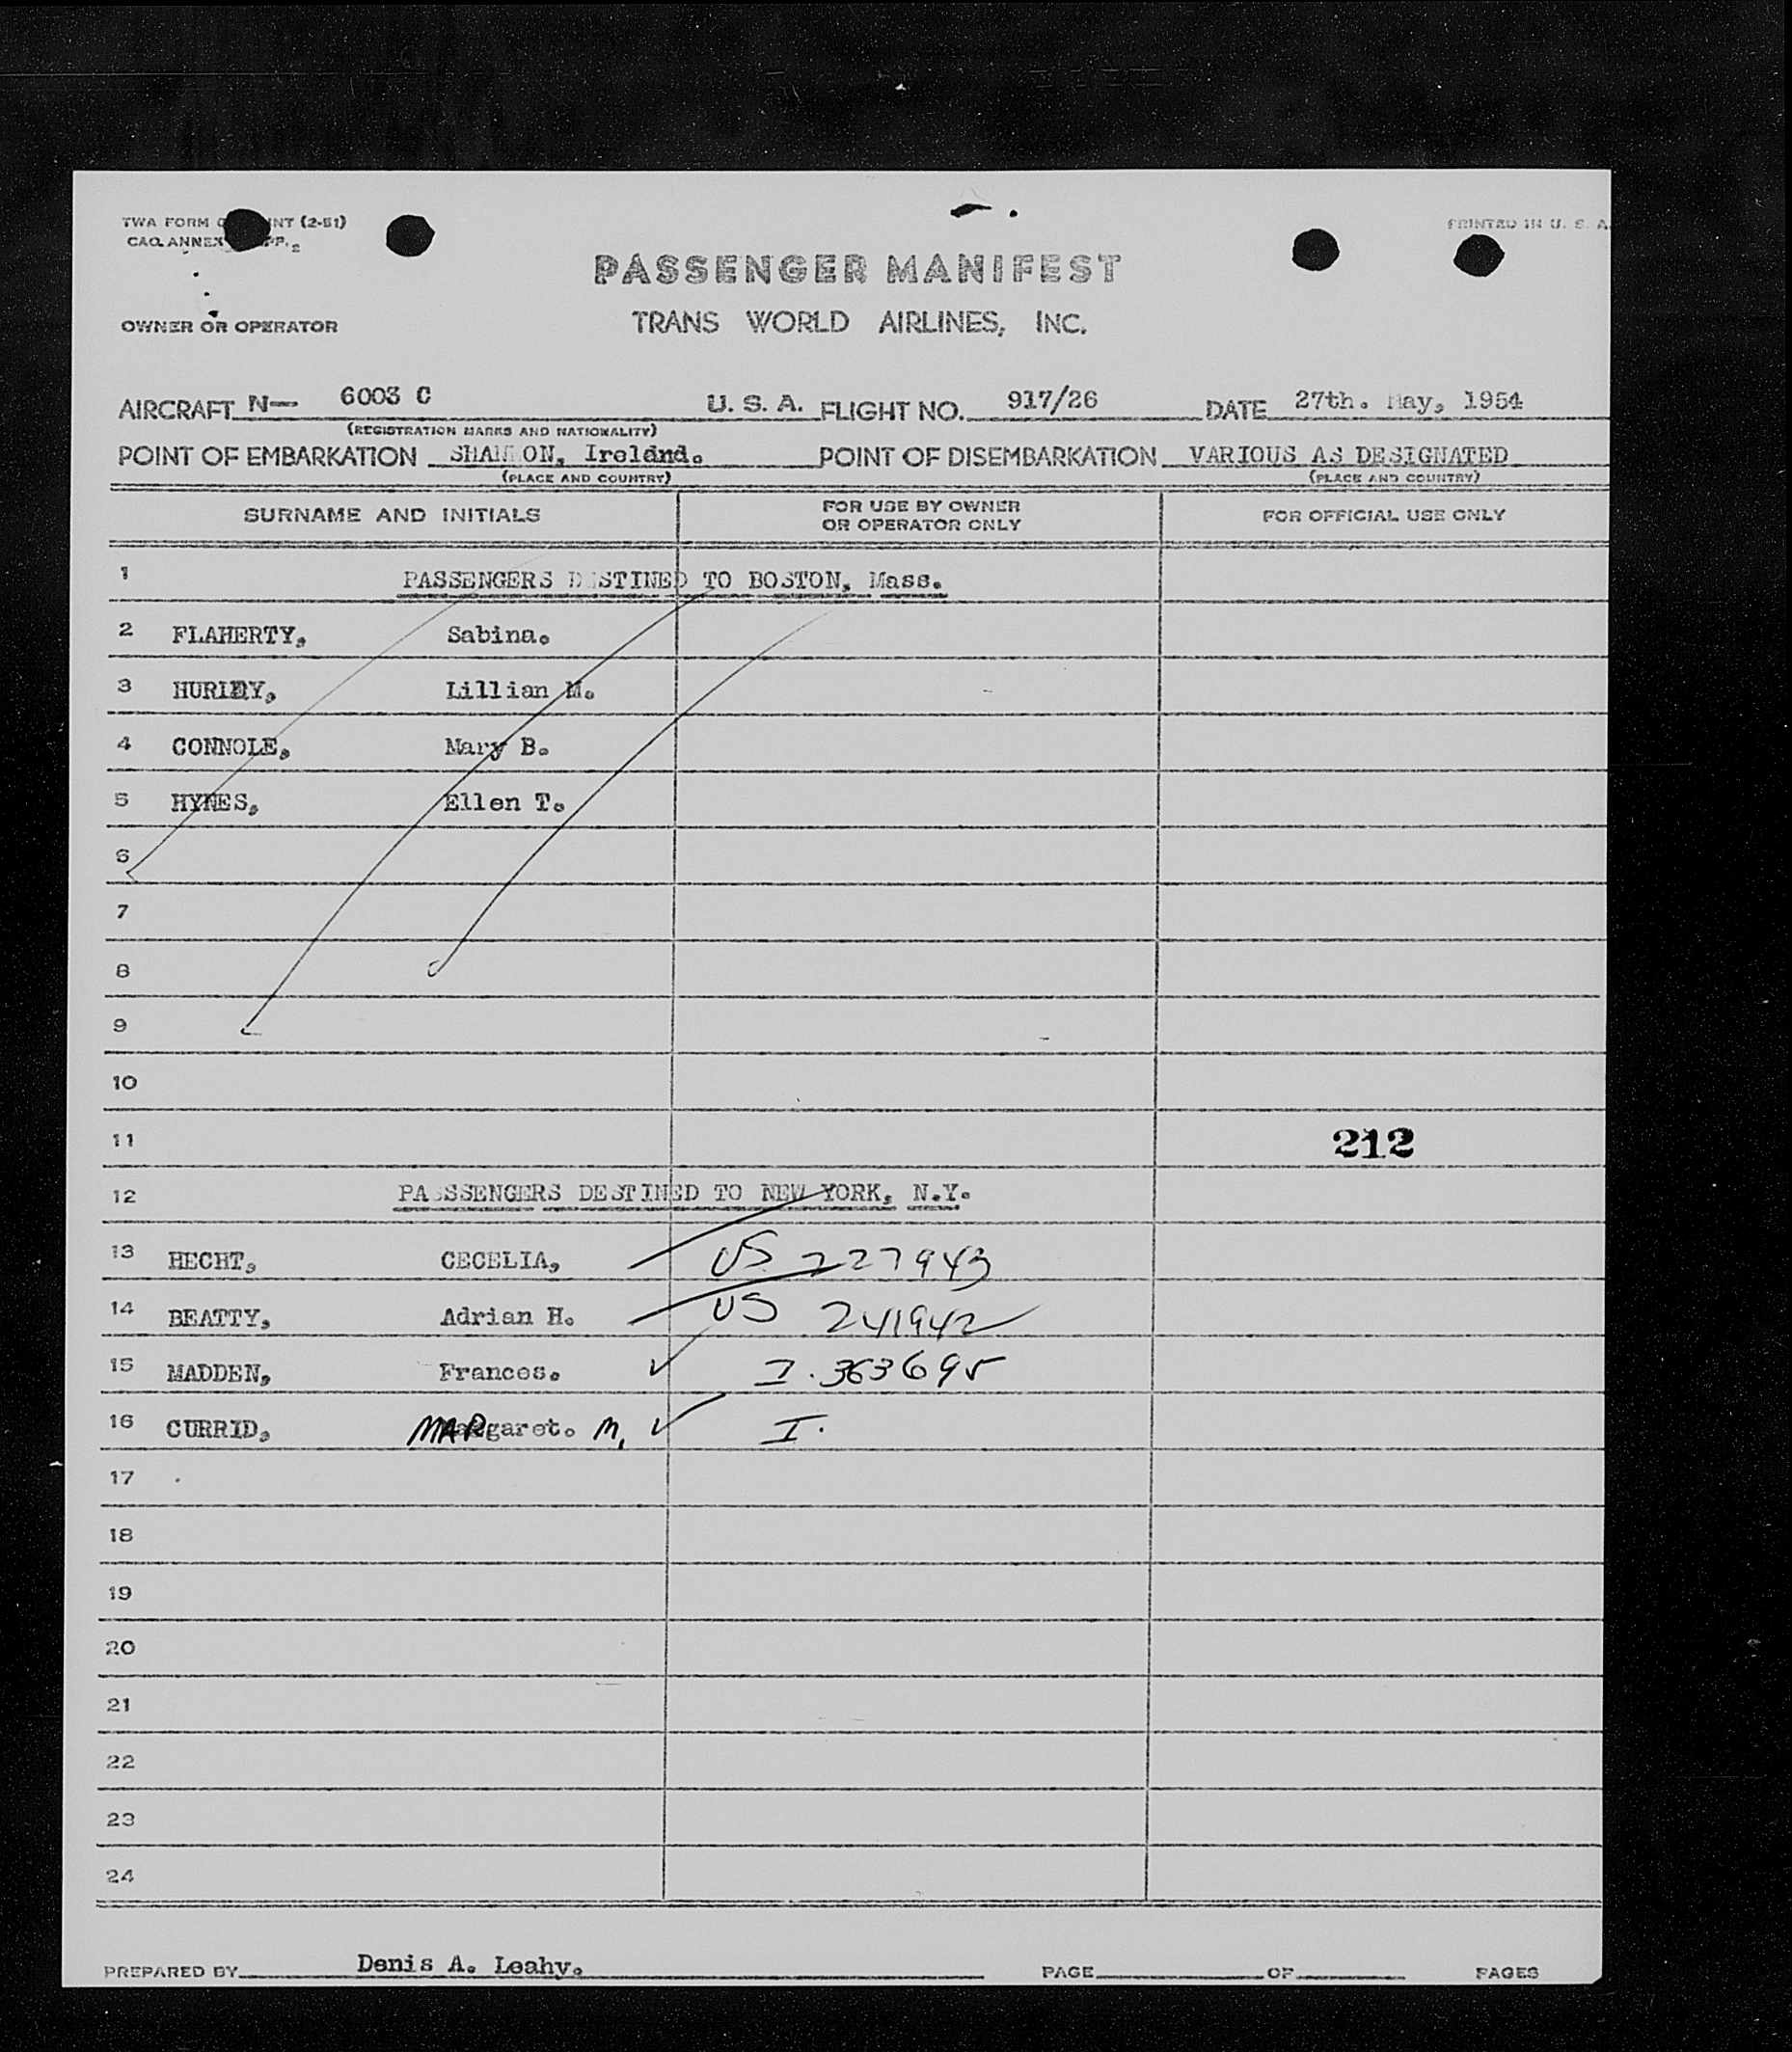 TWA FORM INT (2-51)
PRINTED IN U. S. A.
CAO. ANNEX PP. 2
PASSENGER MANIFEST
OWNER OR OPERATOR
TRANS WORLD AIRLINES, INC.
AIRCRAFT N— 6003 C U. S. A. FLIGHT NO. 917/26 DATE 27th. May, 1954
(REGISTRATION MARKS AND NATIONALITY)
POINT OF EMBARKATION SHANNON, Ireland. POINT OF DISEMBARKATION VARIOUS AS DESIGNATED
(PLACE AND COUNTRY) (PLACE AND COUNTRY)
SURNAME AND INITIALS FOR USE BY OWNER OR OPERATOR ONLY FOR OFFICIAL USE ONLY
1 PASSENGERS DESTINED TO BOSTON, Mass.
2 FLAHERTY, Sabina.
3 HURLEY, Lillian M.
4 CONNOLE, Mary B.
5 HYNES, Ellen T.
6
7
8
9
10
11 212
12 PASSSENGERS DESTINED TO NEW YORK, N.Y.
13 HECHT, CECELIA, US 227943
14 BEATTY, Adrian H. US 241942
15 MADDEN, Frances. I. 363695
16 CURRID, MARgaret. M. I.
17
18
19
20
21
22
23
24
PREPARED BY Denis A. Leahy. PAGE OF PAGES